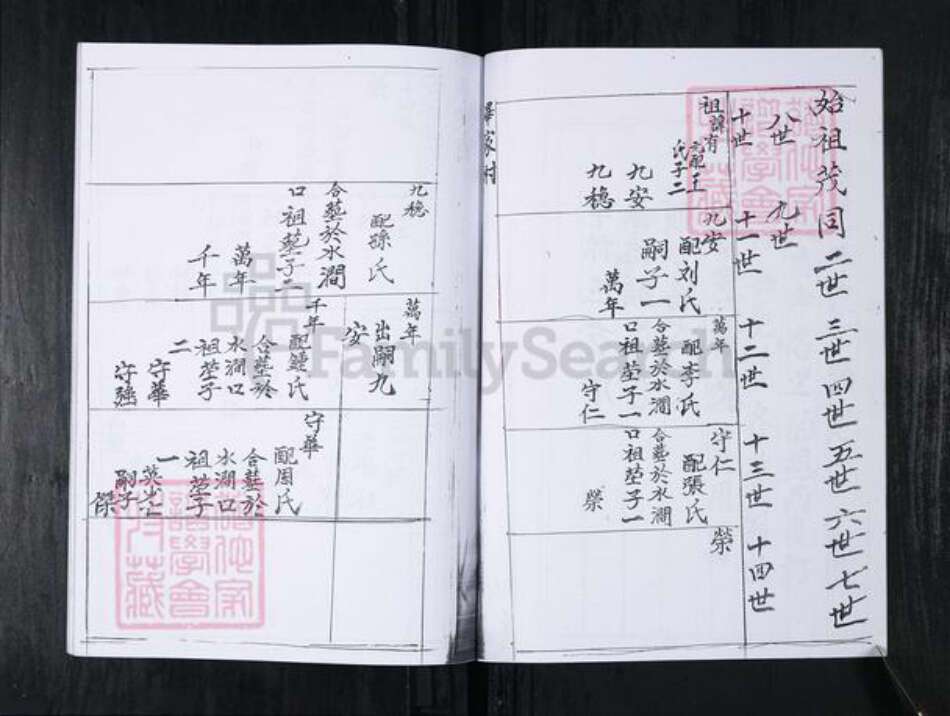 始祖茂同 二世 三世 四世 五世 六世 七世
八世 九世
十世 十一世 十二世 十三世 十四世
祖諱有
元配王
氏子二
九安
九穏
九安
配刘氏
嗣子一
萬年
萬年
配李氏
合葬於水澗
口祖茔子一
守仁
守仁
配張氏
合葬於水澗
口祖茔子一
榮
榮
家村
九穏
配孫氏
合葬於水澗
口祖茔子二
萬年
千年
萬年
出嗣九
安
千年
配鍾氏
合葬於
水澗口
祖茔子
二
守華
守強
守華
配周氏
合葬於
水澗口
祖茔子
一
嗣子
傑
FamilySearch